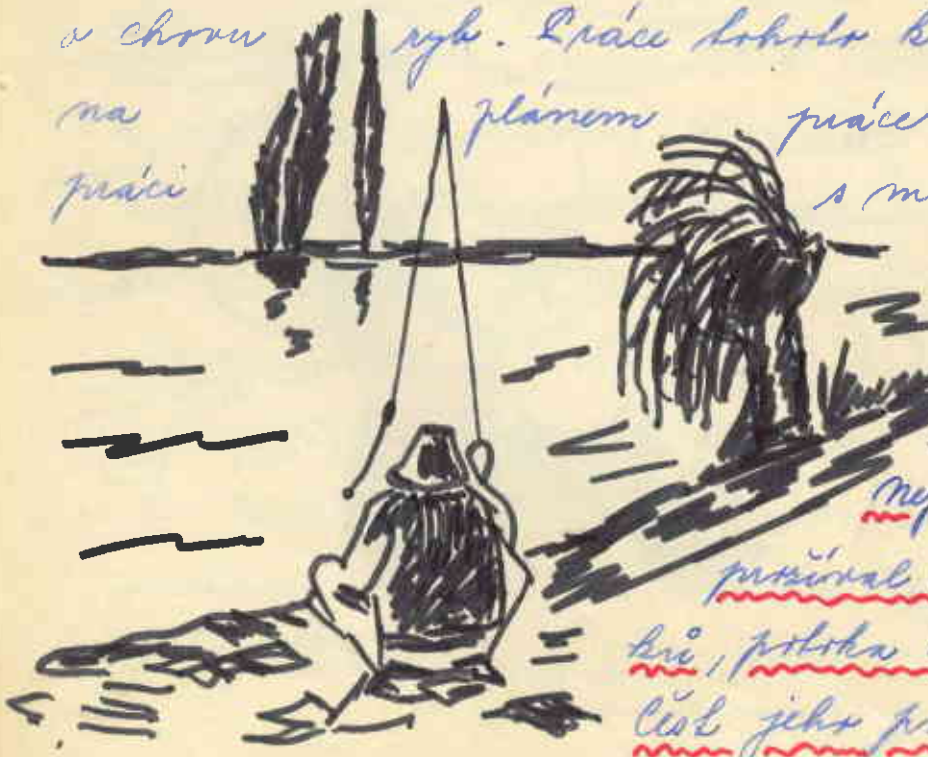 o chovu ryb. Práce tohoto k
na plánem práce
práci s m
nej
prožíval
ků, potoka
Část jeho p